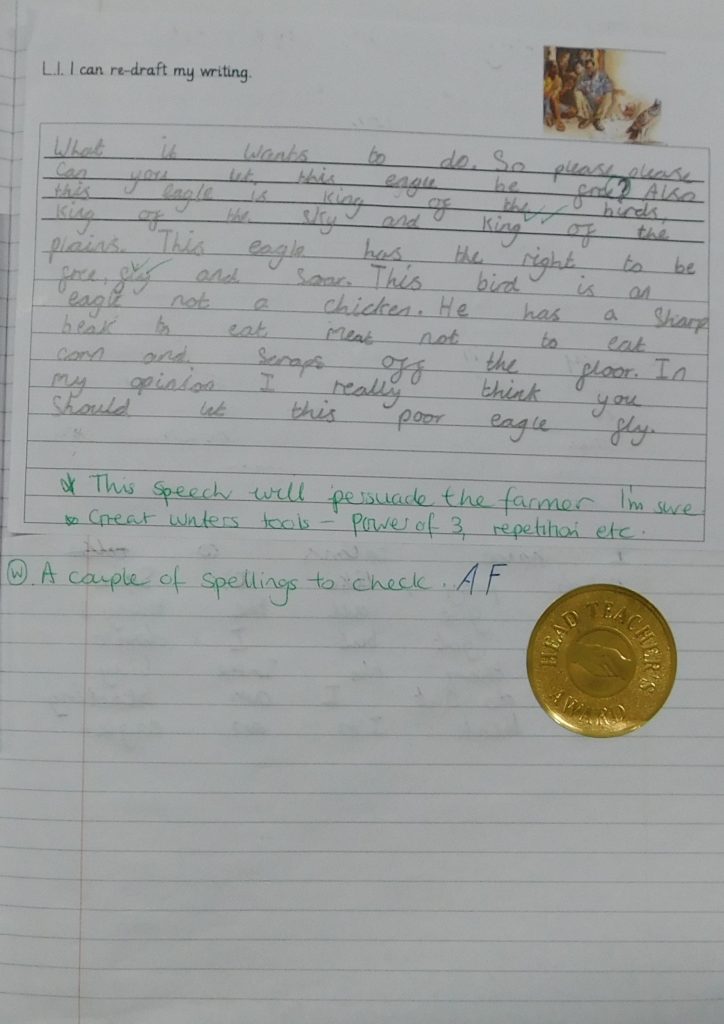 L.I. I can re-draft my writing.
What it wants to do. So please, please
can you let this eagle be free? Also
this eagle is king of the birds,
king of the sky and king of the
plains. This eagle has the right to be
free, fly and soar. This bird is an
eagle not a chicken. He has a sharp
beak to eat meat not to eat
corn and scraps off the floor. In
my opinion I really think you
should let this poor eagle fly.
This speech will persuade the farmer I'm sure.
Great writers tools - Power of 3, repetition etc.
W. A couple of spellings to check. AF
HEAD TEACHER'S
AWARD